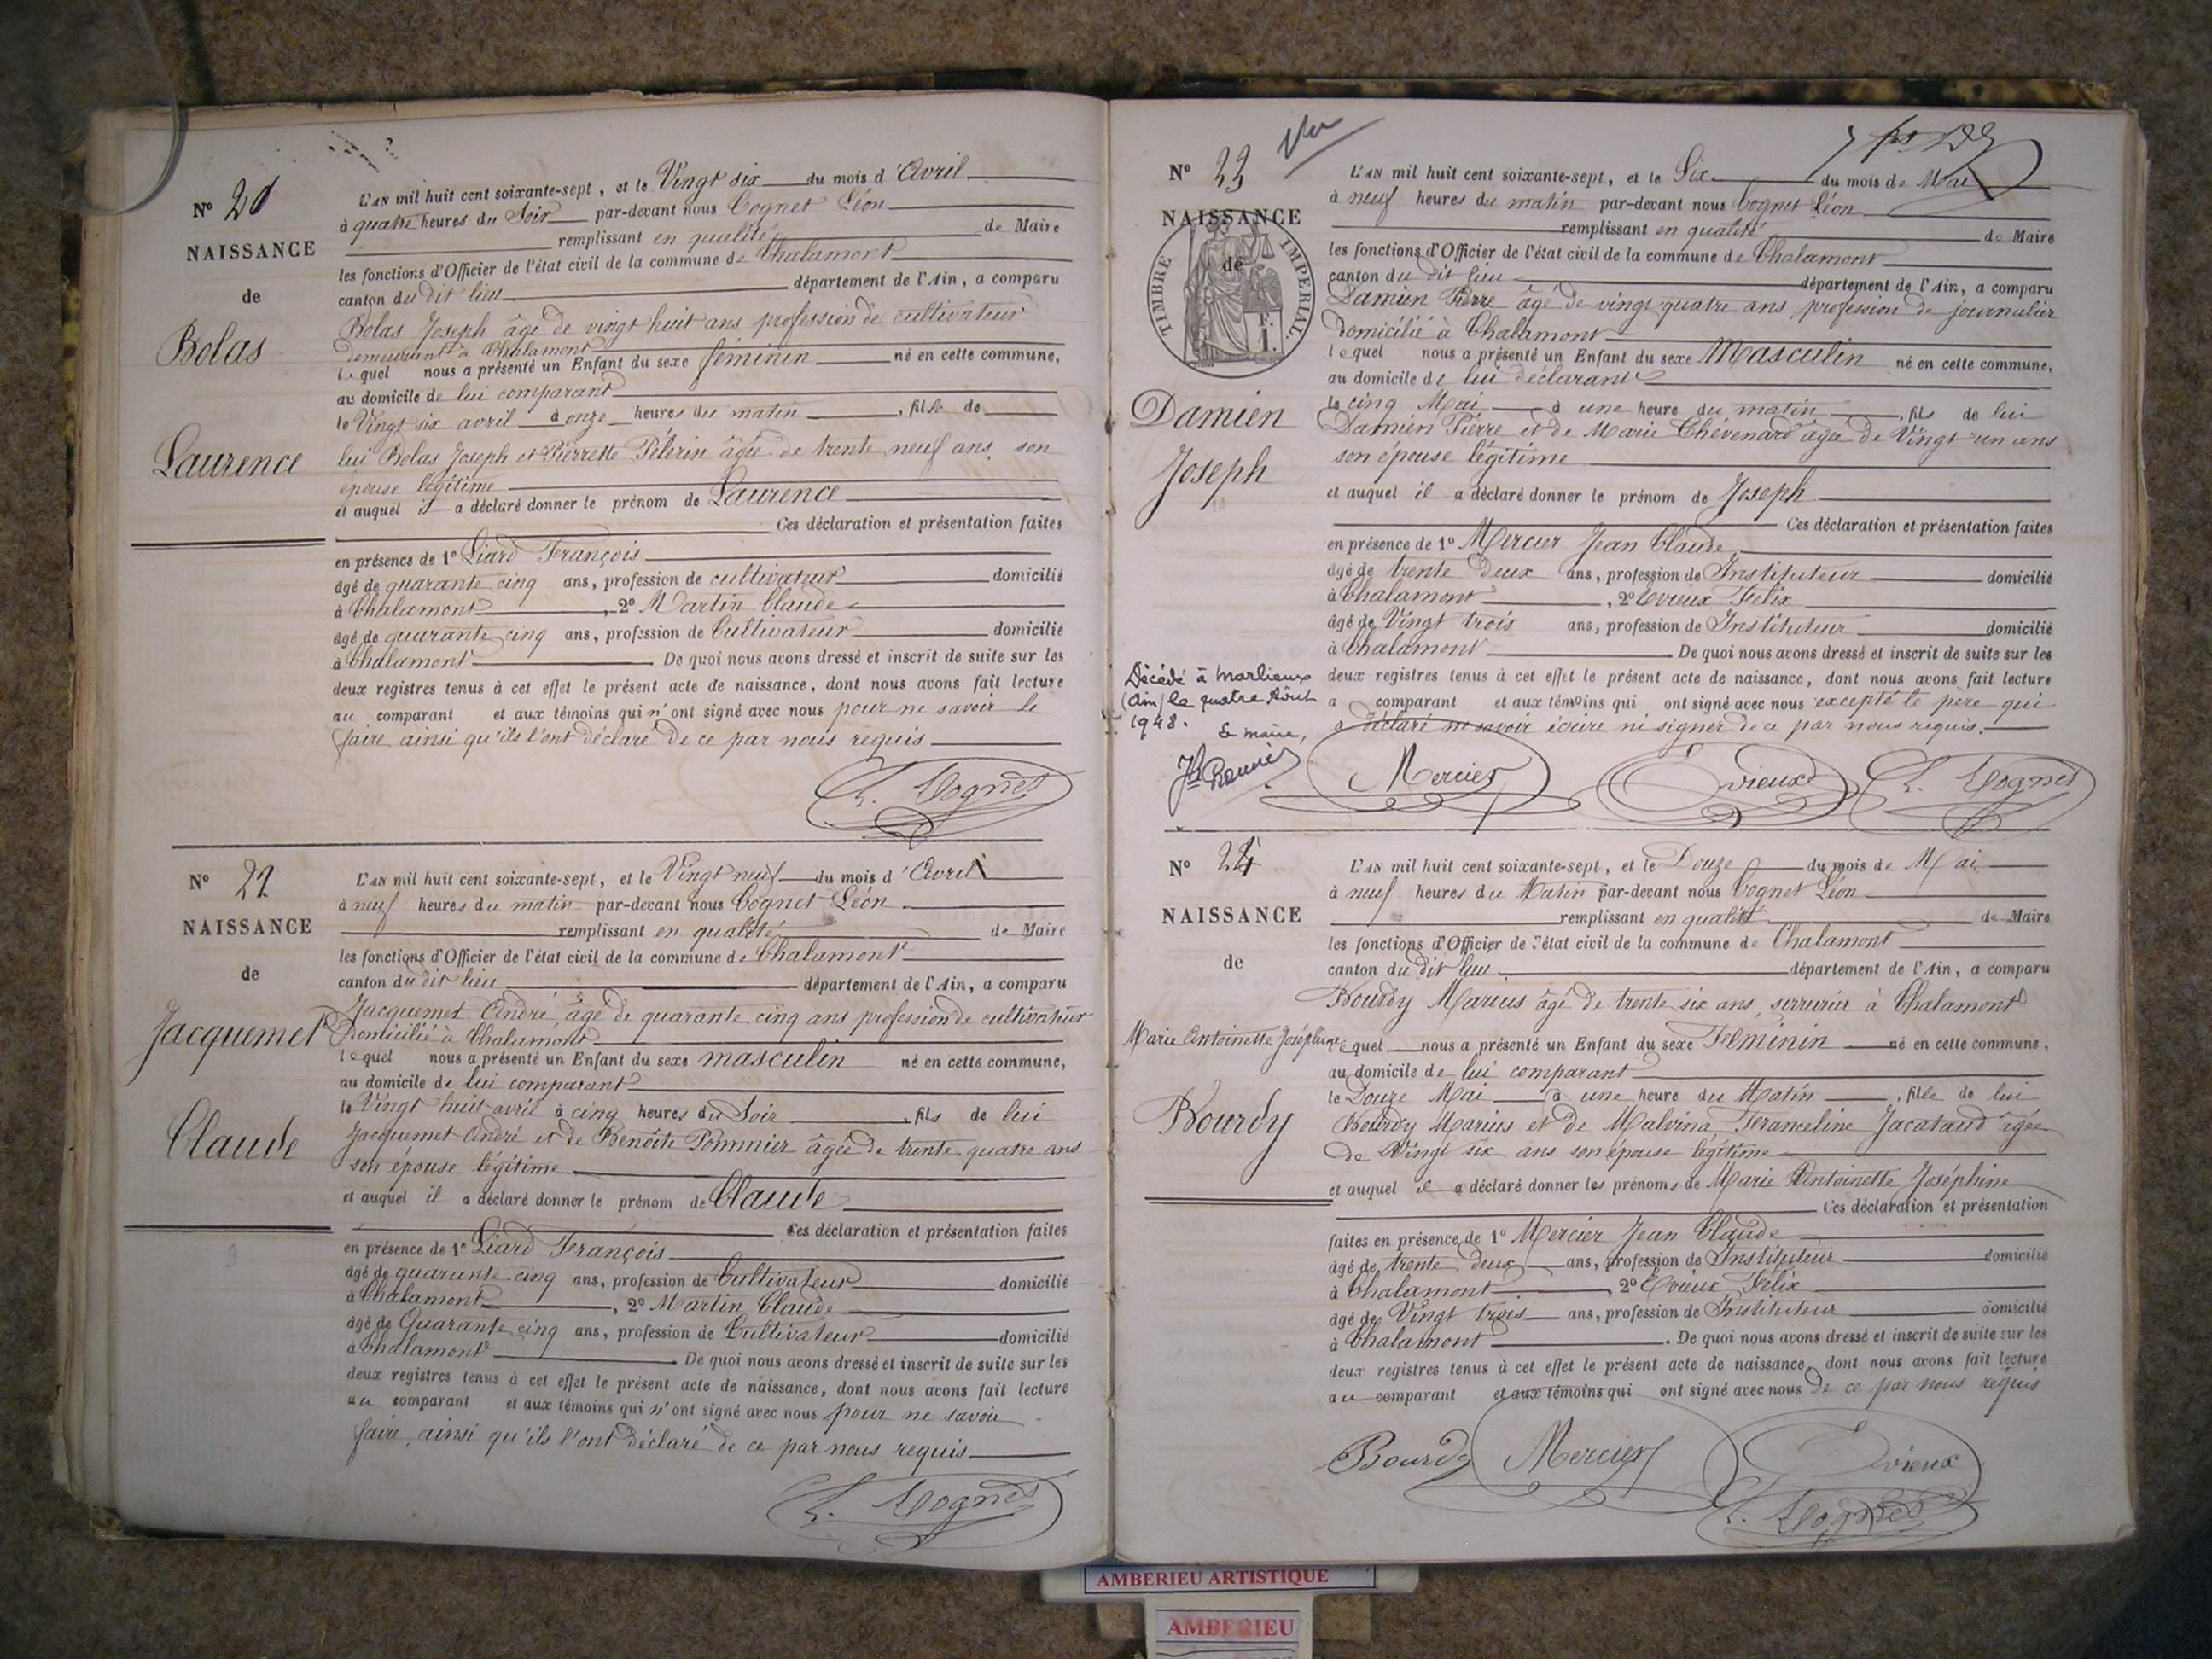 N° 21
NAISSANCE
de
Bolas
Laurence
L'AN mil huit cent soixante-sept, et le Vingt six du mois d'Avril
à quatre heures du Soir par-devant nous Cognet Léon
remplissant en qualité de Maire
les fonctions d'Officier de l'état civil de la commune de Chalamont
canton du dit lieu département de l'Ain, a comparu
Bolas Joseph âgé de vingt huit ans profession de cultivateur
demeurant à Chalamont
lequel nous a présenté un Enfant du sexe féminin né en cette commune,
au domicile de lui comparant
le Vingt six avril à onze heures du matin, fille de
lui Bolas Joseph et Pierrette Pélerin âgée de trente neuf ans, son
épouse légitime
et auquel il a déclaré donner le prénom de Laurence
Ces déclaration et présentation faites
en présence de 1° Liard François
âgé de quarante cinq ans, profession de cultivateur domicilié
à Chalamont, 2° Martin Claude
âgé de quarante cinq ans, profession de Cultivateur domicilié
à Chalamont. De quoi nous avons dressé et inscrit de suite sur les
deux registres tenus à cet effet le présent acte de naissance, dont nous avons fait lecture
au comparant et aux témoins qui n'ont signé avec nous pour ne savoir le
faire ainsi qu'ils l'ont déclaré de ce par nous requis
L. Cognet
N° 22
NAISSANCE
de
Jacquemet
Claude
L'AN mil huit cent soixante-sept, et le Vingt neuf du mois d'Avril
à neuf heures du matin par-devant nous Cognet Léon
remplissant en qualité de Maire
les fonctions d'Officier de l'état civil de la commune de Chalamont
canton du dit lieu département de l'Ain, a comparu
Jacquemet André, âgé de quarante cinq ans profession de cultivateur
Domicilié à Chalamont
lequel nous a présenté un Enfant du sexe masculin né en cette commune,
au domicile de lui comparant
le Vingt huit avril à cinq heures du Soir, fils de lui
Jacquemet André et de Benoite Pommier âgée de trente quatre ans
son épouse légitime
et auquel il a déclaré donner le prénom de Claude
Ces déclaration et présentation faites
en présence de 1° Liard François
âgé de quarante cinq ans, profession de Cultivateur domicilié
à Chalamont, 2° Martin Claude
âgé de Quarante cinq ans, profession de Cultivateur domicilié
à Chalamont. De quoi nous avons dressé et inscrit de suite sur les
deux registres tenus à cet effet le présent acte de naissance, dont nous avons fait lecture
au comparant et aux témoins qui n'ont signé avec nous pour ne savoir
faire, ainsi qu'ils l'ont déclaré de ce par nous requis
L. Cognet
Vu
N° 23
NAISSANCE
de
TIMBRE IMPERIAL.
F.
1.
Damien
Joseph
Décédé à Marlieux
(Ain) le quatre Août
1948.
Le maire,
L'AN mil huit cent soixante-sept, et le Six du mois de Mai
à neuf heures du matin par-devant nous Cognet Léon
remplissant en qualité de Maire
les fonctions d'Officier de l'état civil de la commune de Chalamont
canton du dit lieu département de l'Ain, a comparu
Damien Pierre âgé de vingt quatre ans, profession de journalier
domicilié à Chalamont
lequel nous a présenté un Enfant du sexe Masculin né en cette commune,
au domicile de lui déclarant
le cinq Mai à une heure du matin, fils de lui
Damien Pierre et de Marie Chévenard âgée de Vingt un ans
son épouse légitime
et auquel il a déclaré donner le prénom de Joseph
Ces déclaration et présentation faites
en présence de 1° Mercier Jean Claude
âgé de trente deux ans, profession de Instituteur domicilié
à Chalamont, 2° Evieux Félix
âgé de Vingt trois ans, profession de Instituteur domicilié
à Chalamont. De quoi nous avons dressé et inscrit de suite sur les
deux registres tenus à cet effet le présent acte de naissance, dont nous avons fait lecture
a comparant et aux témoins qui ont signé avec nous excepté le père qui
a déclaré ne savoir écrire ni signer de ce par nous requis.
Mercier Evieux L. Cognet
N° 24
NAISSANCE
de
Marie Antoinette Joséphine
Bourdy
L'AN mil huit cent soixante-sept, et le Douze du mois de Mai
à neuf heures du Matin par-devant nous Cognet Léon
remplissant en qualité de Maire
les fonctions d'Officier de l'état civil de la commune de Chalamont
canton du dit lieu département de l'Ain, a comparu
Bourdy Marius âgé de trente six ans, serrurier à Chalamont
lequel nous a présenté un Enfant du sexe Féminin né en cette commune,
au domicile de lui comparant
le Douze Mai à une heure du Matin, fille de lui
Bourdy Marius et de Malvina Feranceline Jacataud âgée
de Vingt six ans son épouse légitime
et auquel il a déclaré donner les prénoms de Marie Antoinette Joséphine
Ces déclaration et présentation
faites en présence de 1° Mercier Jean Claude
âgé de trente deux ans, profession de Instituteur domicilié
à Chalamont, 2° Evieux Félix
âgé de Vingt trois ans, profession de Instituteur domicilié
à Chalamont. De quoi nous avons dressé et inscrit de suite sur les
deux registres tenus à cet effet le présent acte de naissance, dont nous avons fait lecture
au comparant et aux témoins qui ont signé avec nous de ce par nous requis
Bourdy Mercier Evieux
L. Cognet
AMBERIEU ARTISTIQUE
AMBERIEU